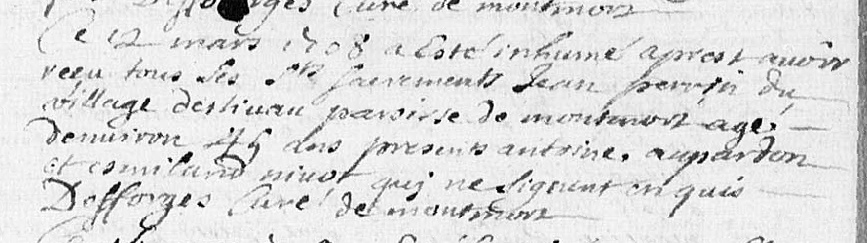 Defforges Curé de montmort
Le 12 mars 1708 a Esté inhumé aprest avoir
receu tous ses Sts sacrements Jean perrin du
village destivau paroisse de montmort agé
denviron 45 ans presents antoine aupardon
et esmiland nivot quj ne signent enquis
Defforges Curé de montmort